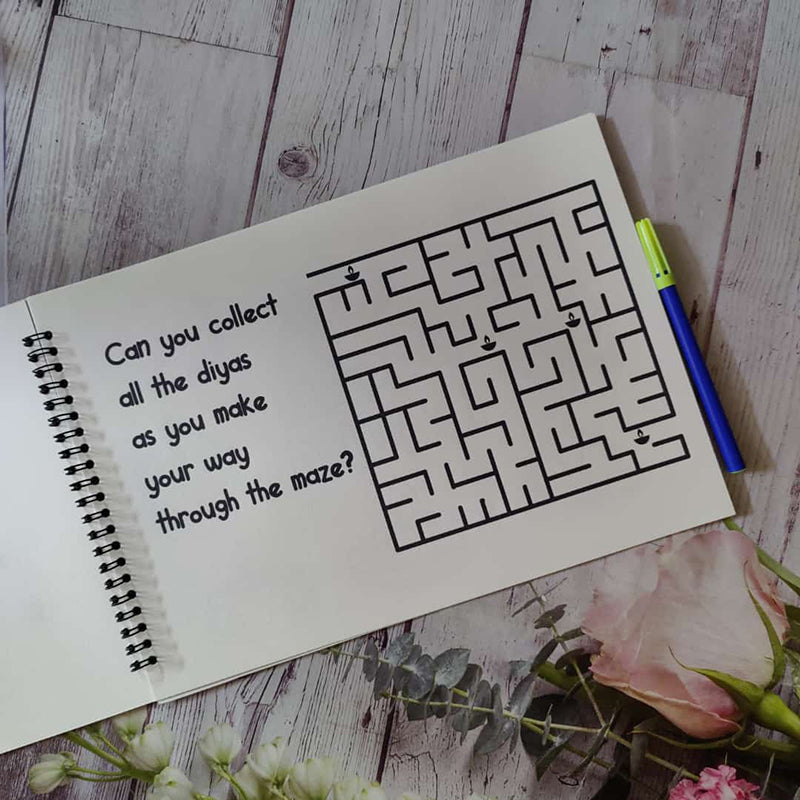 Can you collect
all the diyas
as you make
your way
through the maze?